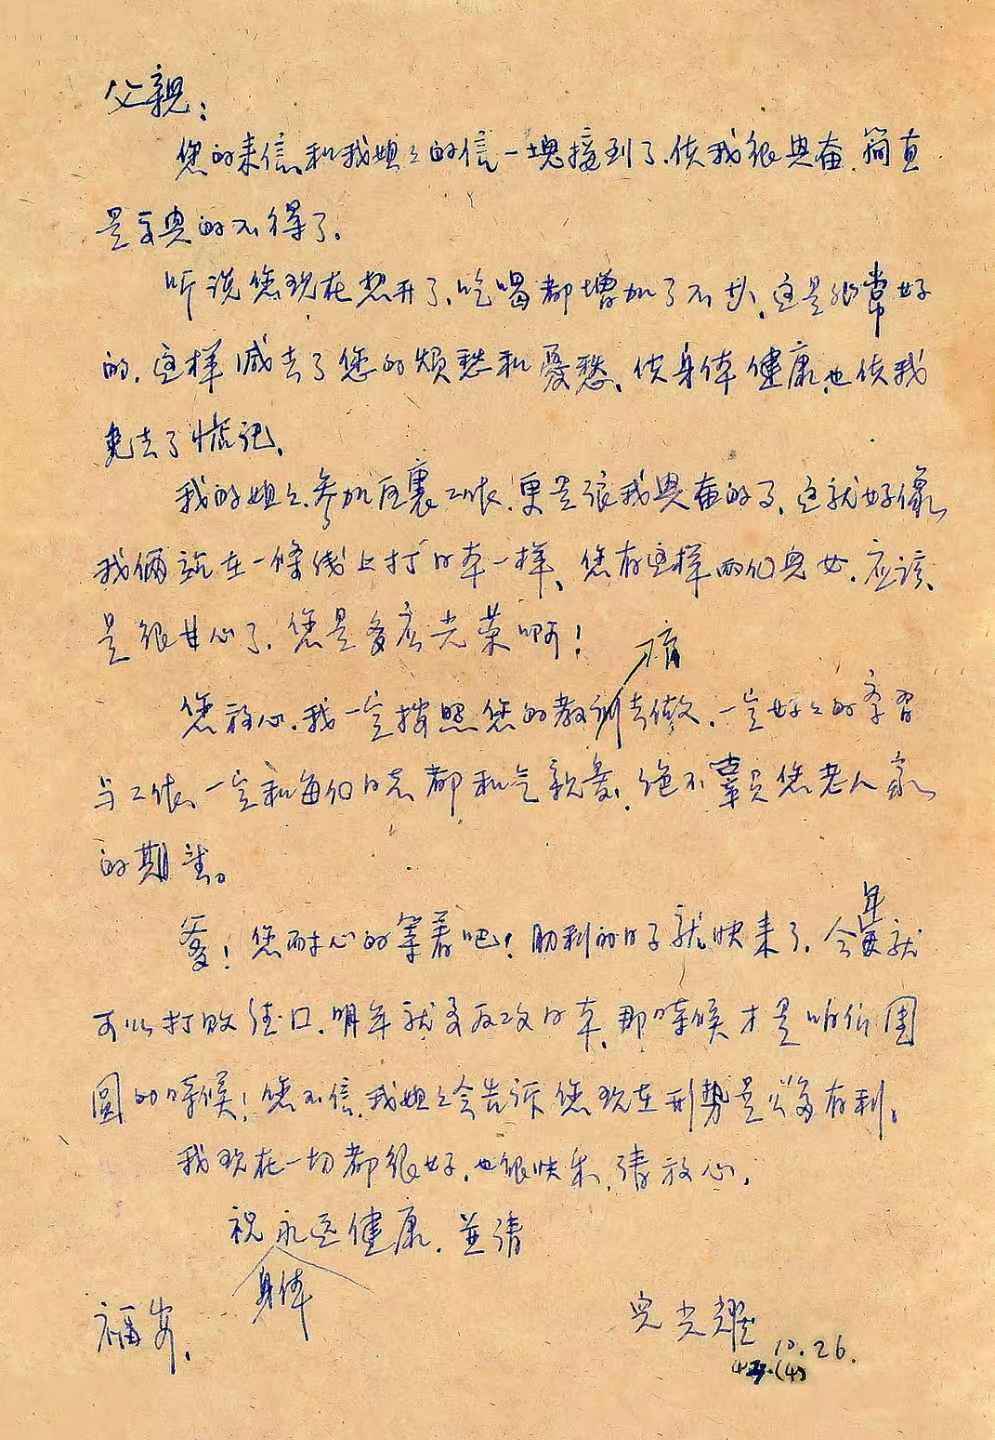 父親：
您的来信和我姐々的信一塊接到了，使我很興奋，简直
是高興的不得了。
听说您现在想开了，吃喝都增加了不少，这是非常好
的，这样减去了您的烦愁和憂愁，使身体健康，也使我
免去了惦记。
我的姐々参加区裏工作，更是讓我興奋的了，这就好像
我俩站在一條线上打日本一样，您有这样两個兒女，应该
是很甘心了，您是多麽光荣啊！
您放心，我一定按照您的教訓去做，一定好々的学習
与工作，一定和每個同志都和气親爱，绝不辜负您老人家
的期望。
爹！您耐心的等着吧！勝利的日子就快来了，今年就
可以打败德国，明年就要反攻日本，那時候才是咱们团
圆的時候！您不信，我姐々会告诉您现在形势是多有利。
我现在一切都很好，也很快乐，请放心。
祝身体永远健康，並请
福安，
兒光耀
10.26.